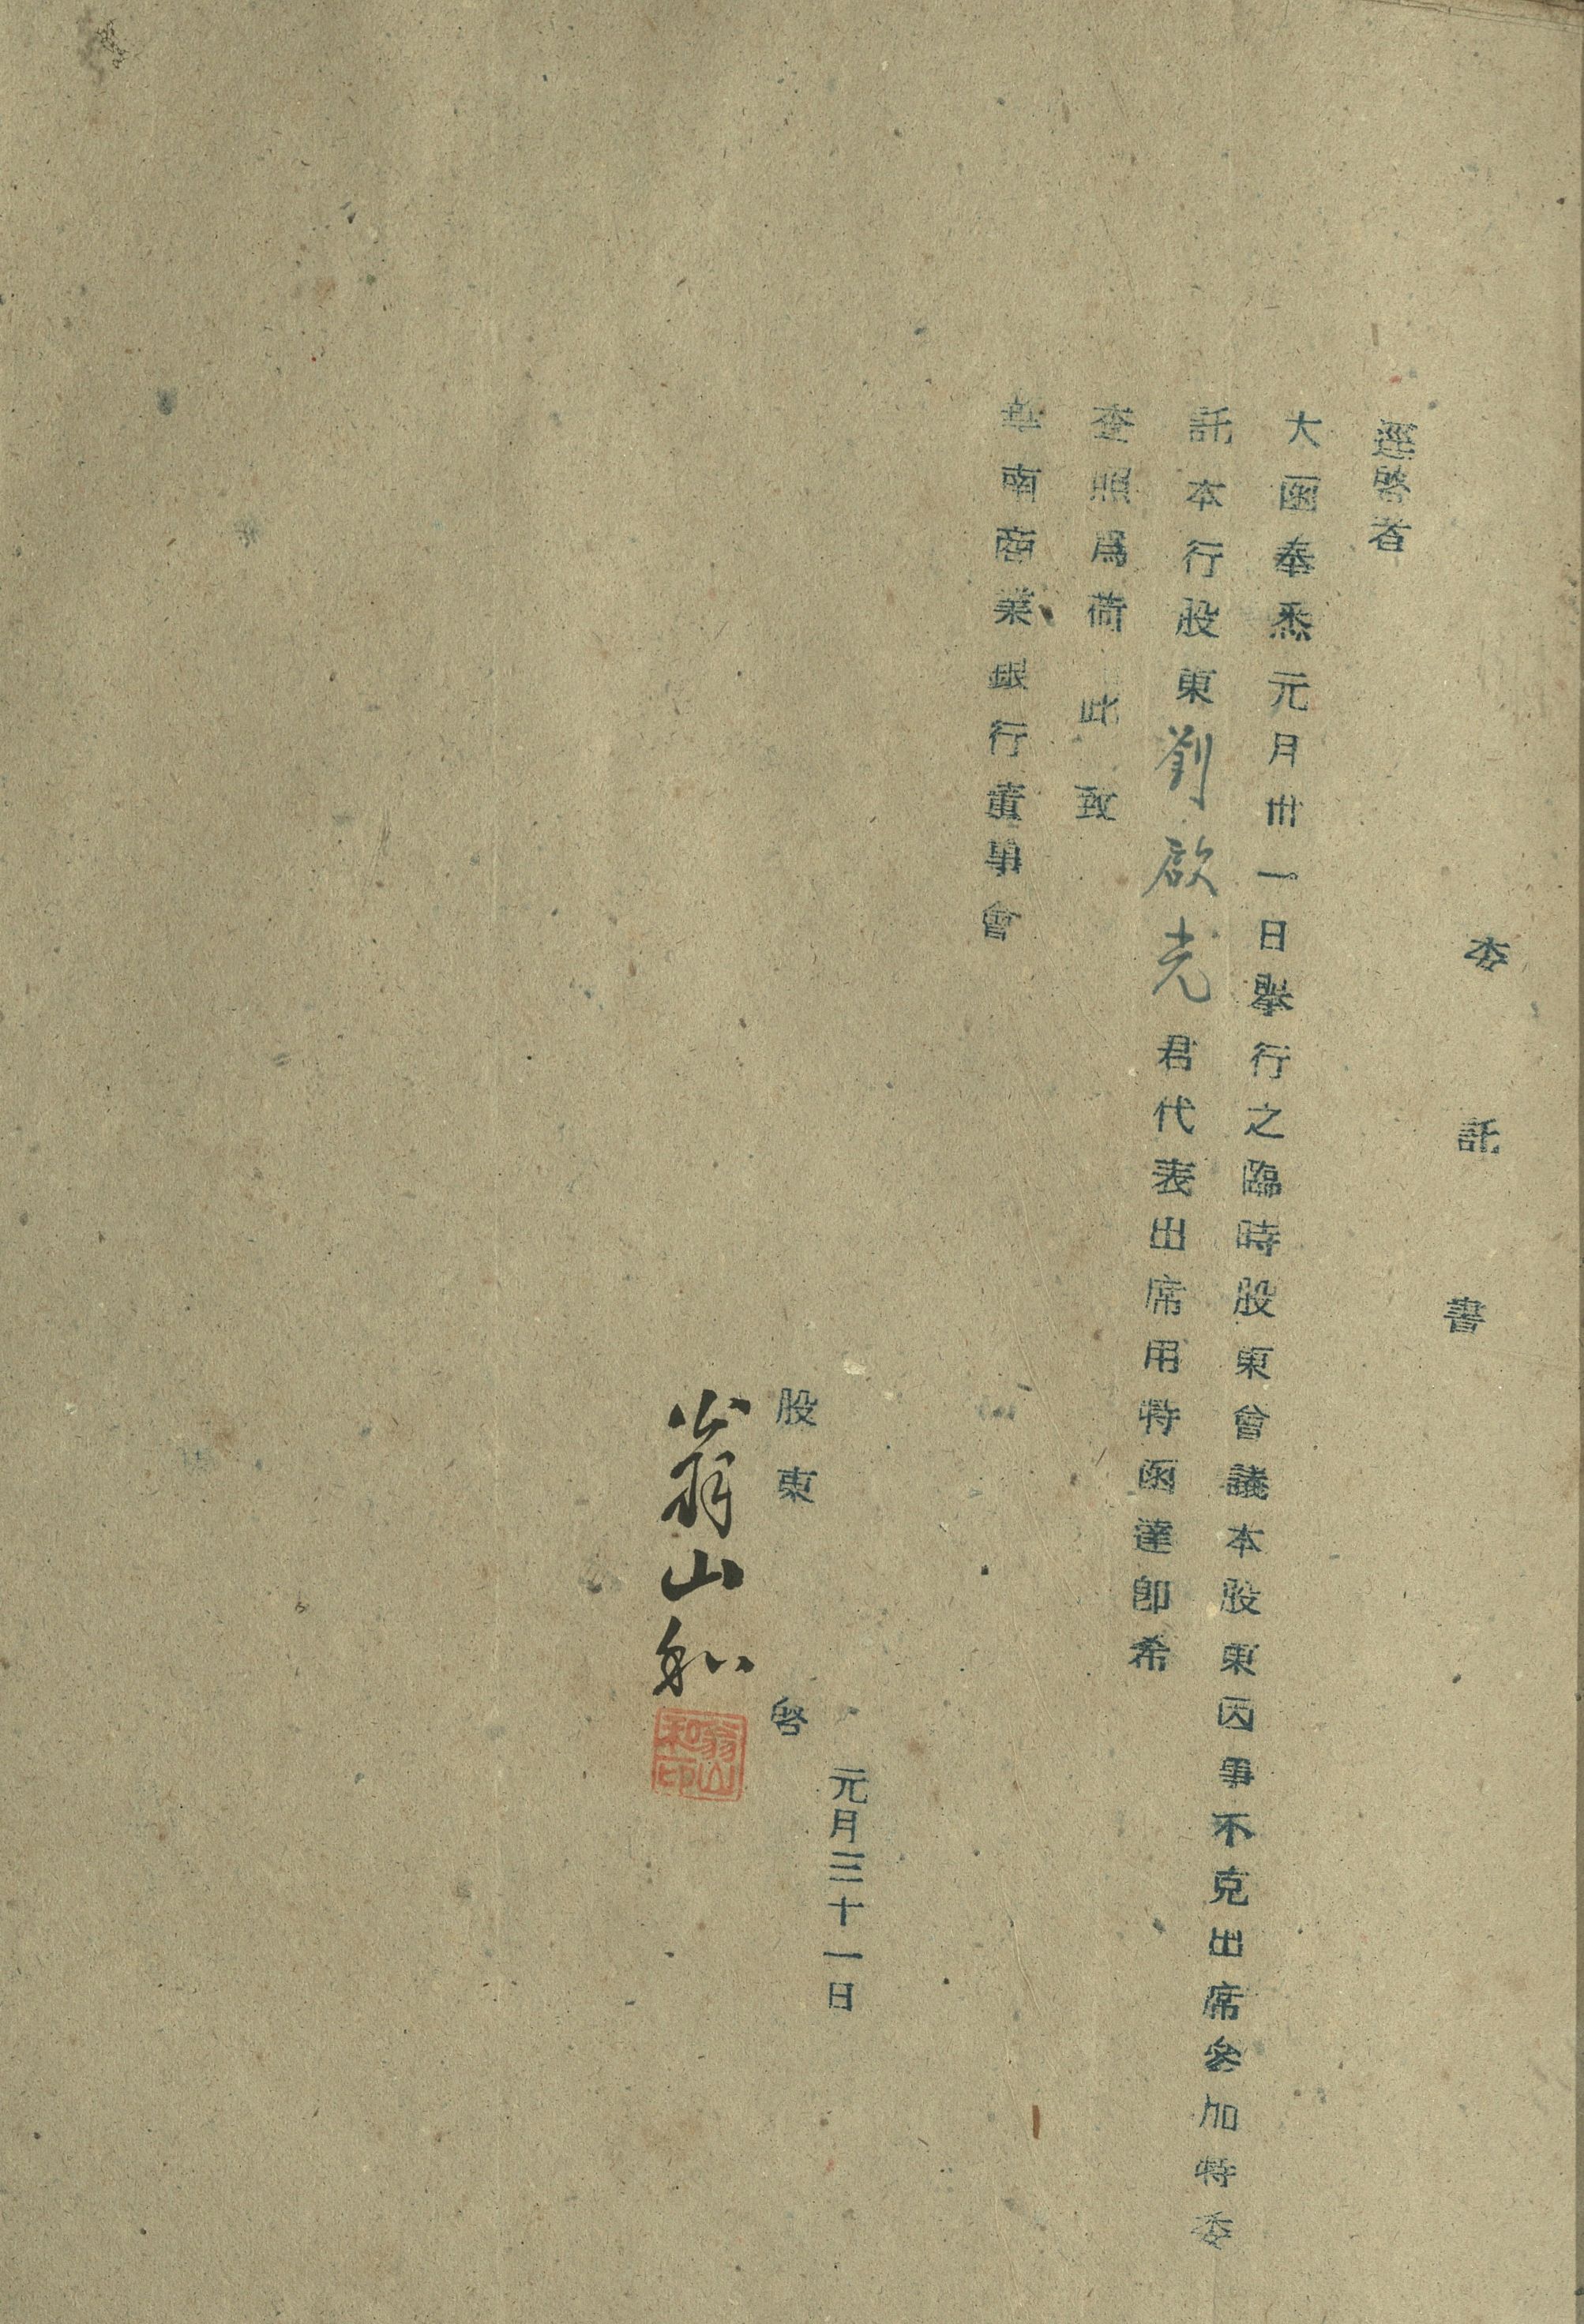 委託書
逕啓者
大函奉悉元月卅一日舉行之臨時股東會議本股東因事不克出席參加特委
託本行股東劉啟光君代表出席用特函達卽希
查照爲荷 此致
華南商業銀行董事會
元月三十一日
股東 啓
翁山和
翁山和印